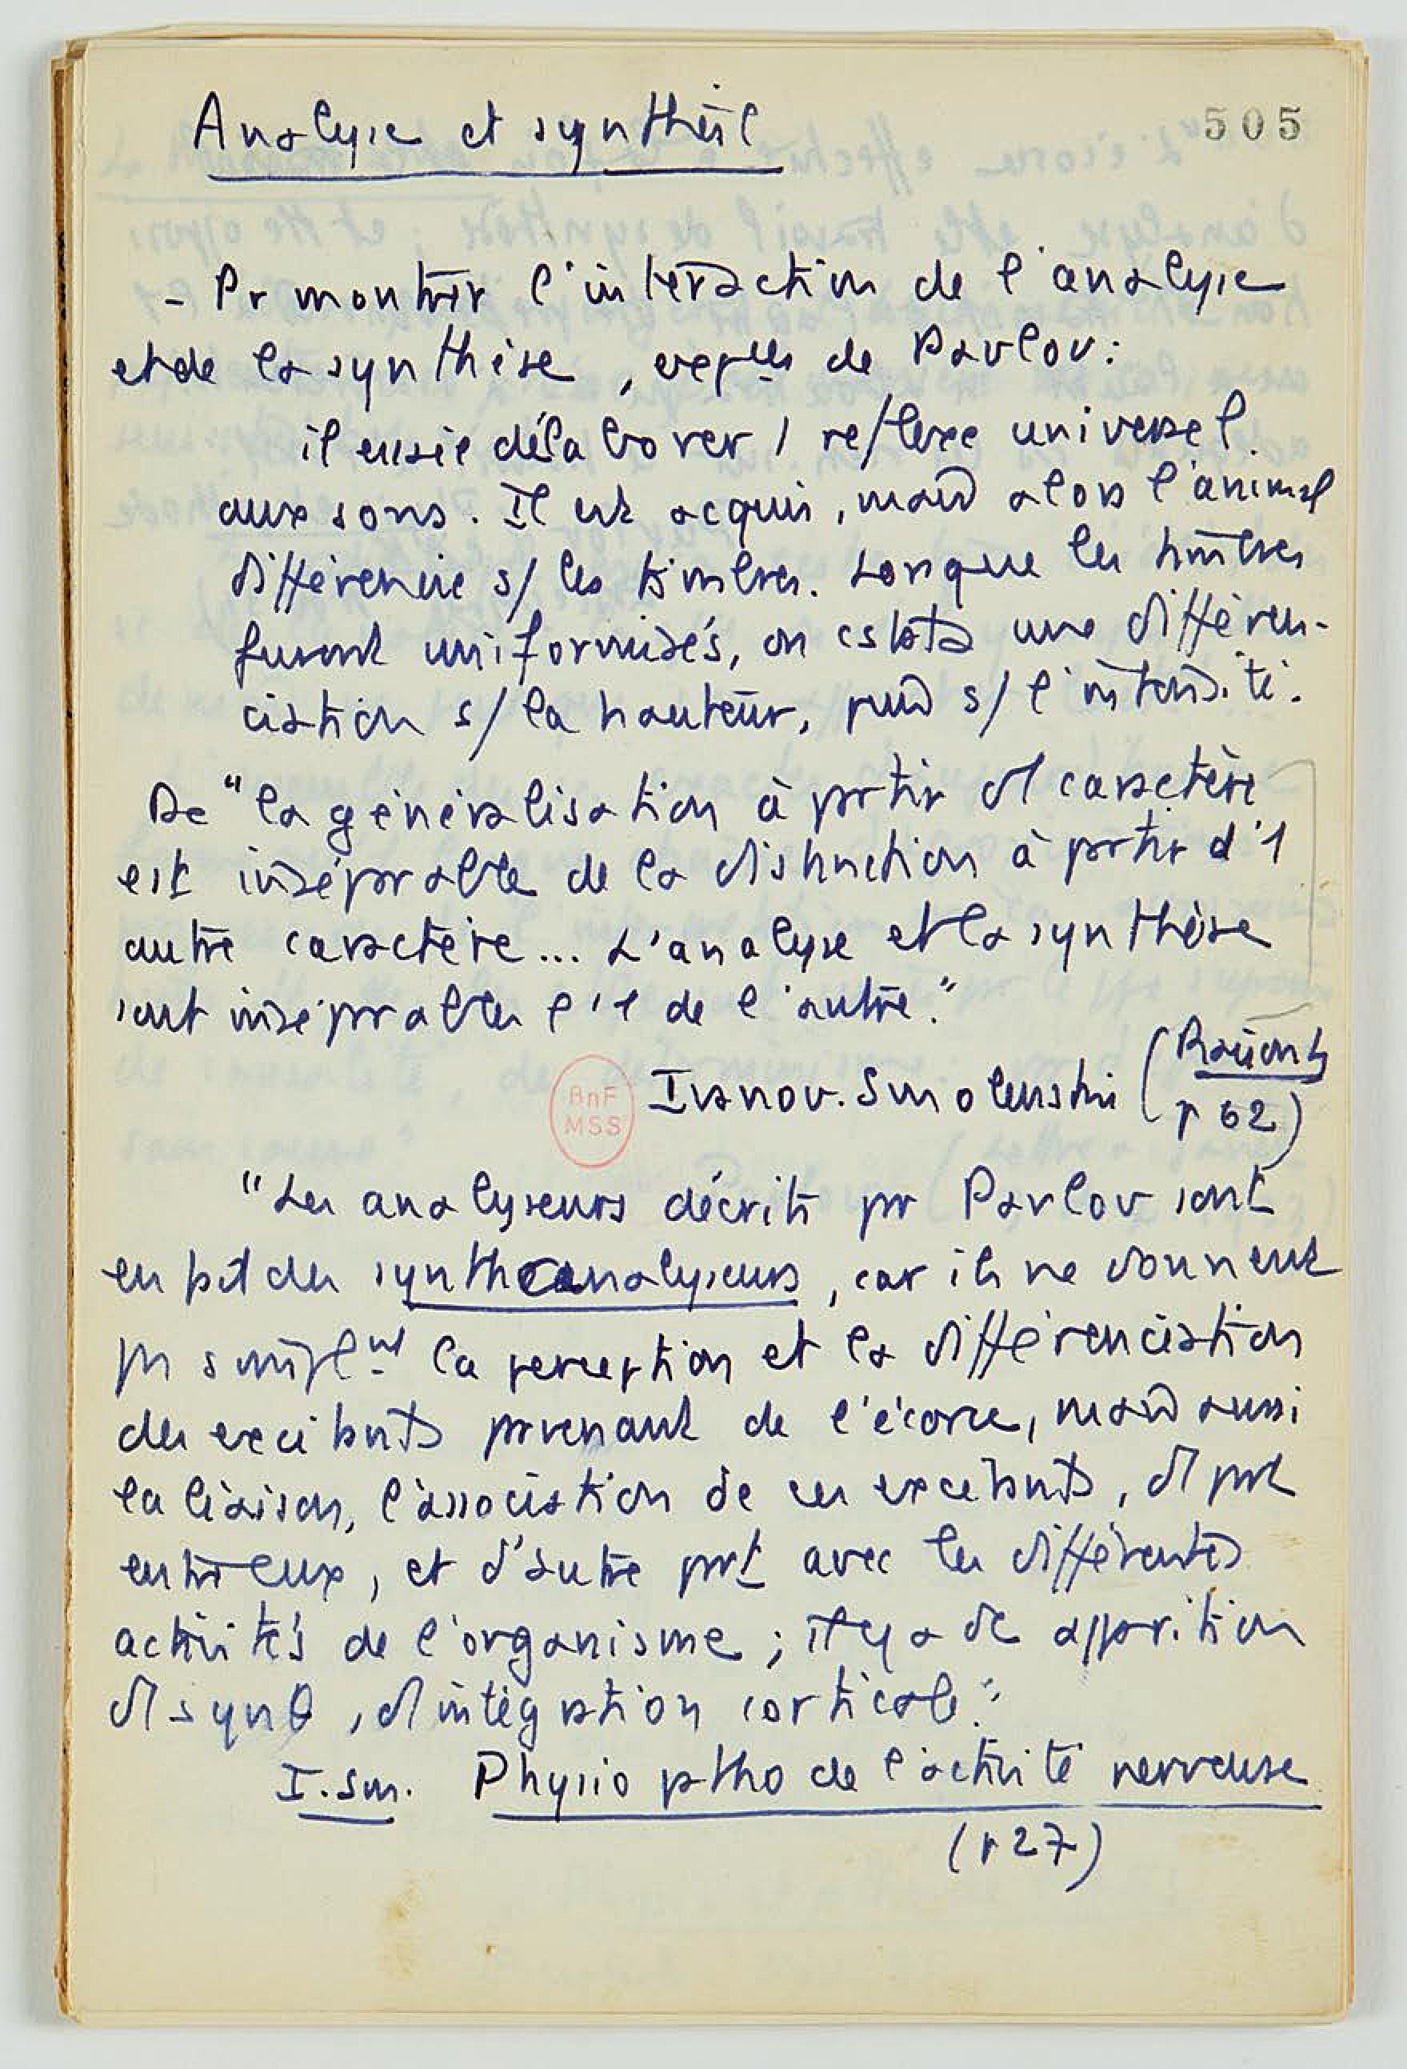 505
Analyse et synthèse
- Pr montrer l'interaction de l'analyse
et de la synthèse, de Pavlov:
il essaie d'élaborer 1 reflexe universel
aux sons. Il est acquis, mais alors l'animal
différencie s/ les timbres. Lorsque les timbres
furent uniformisés, on cstata une différen-
ciation s/ la hauteur, puis s/ l'intensité.
De "la généralisation à partir d'1 caractère
est inséparable de la distinction à partir d'1
autre caractère... L'analyse et la synthèse
sont inséparables l'1 de l'autre."
Ivanov. Smolenski (
p 62)
BnF
MSS
"Les analyseurs décrits pr Pavlov sont
en fait des synthoanalyseurs, car ils ne donnent
pas simplent la perception et la différenciation
des excitants prvenant de l'écorce, mais aussi
la liaison, l'association de ces excitants, d'1 part
entre eux, et d'autre part avec les différentes
activités de l'organisme; il y a dc apparition
d'1 synθ, d'1 intégration corticale".
I. Sm. Physio ptho de l'activité nerveuse
(p 27)